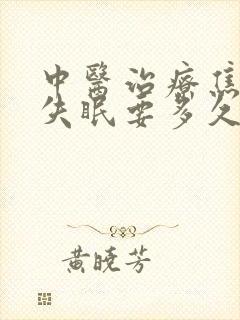 中醫治療焦
失眠要多久
黃曉芳